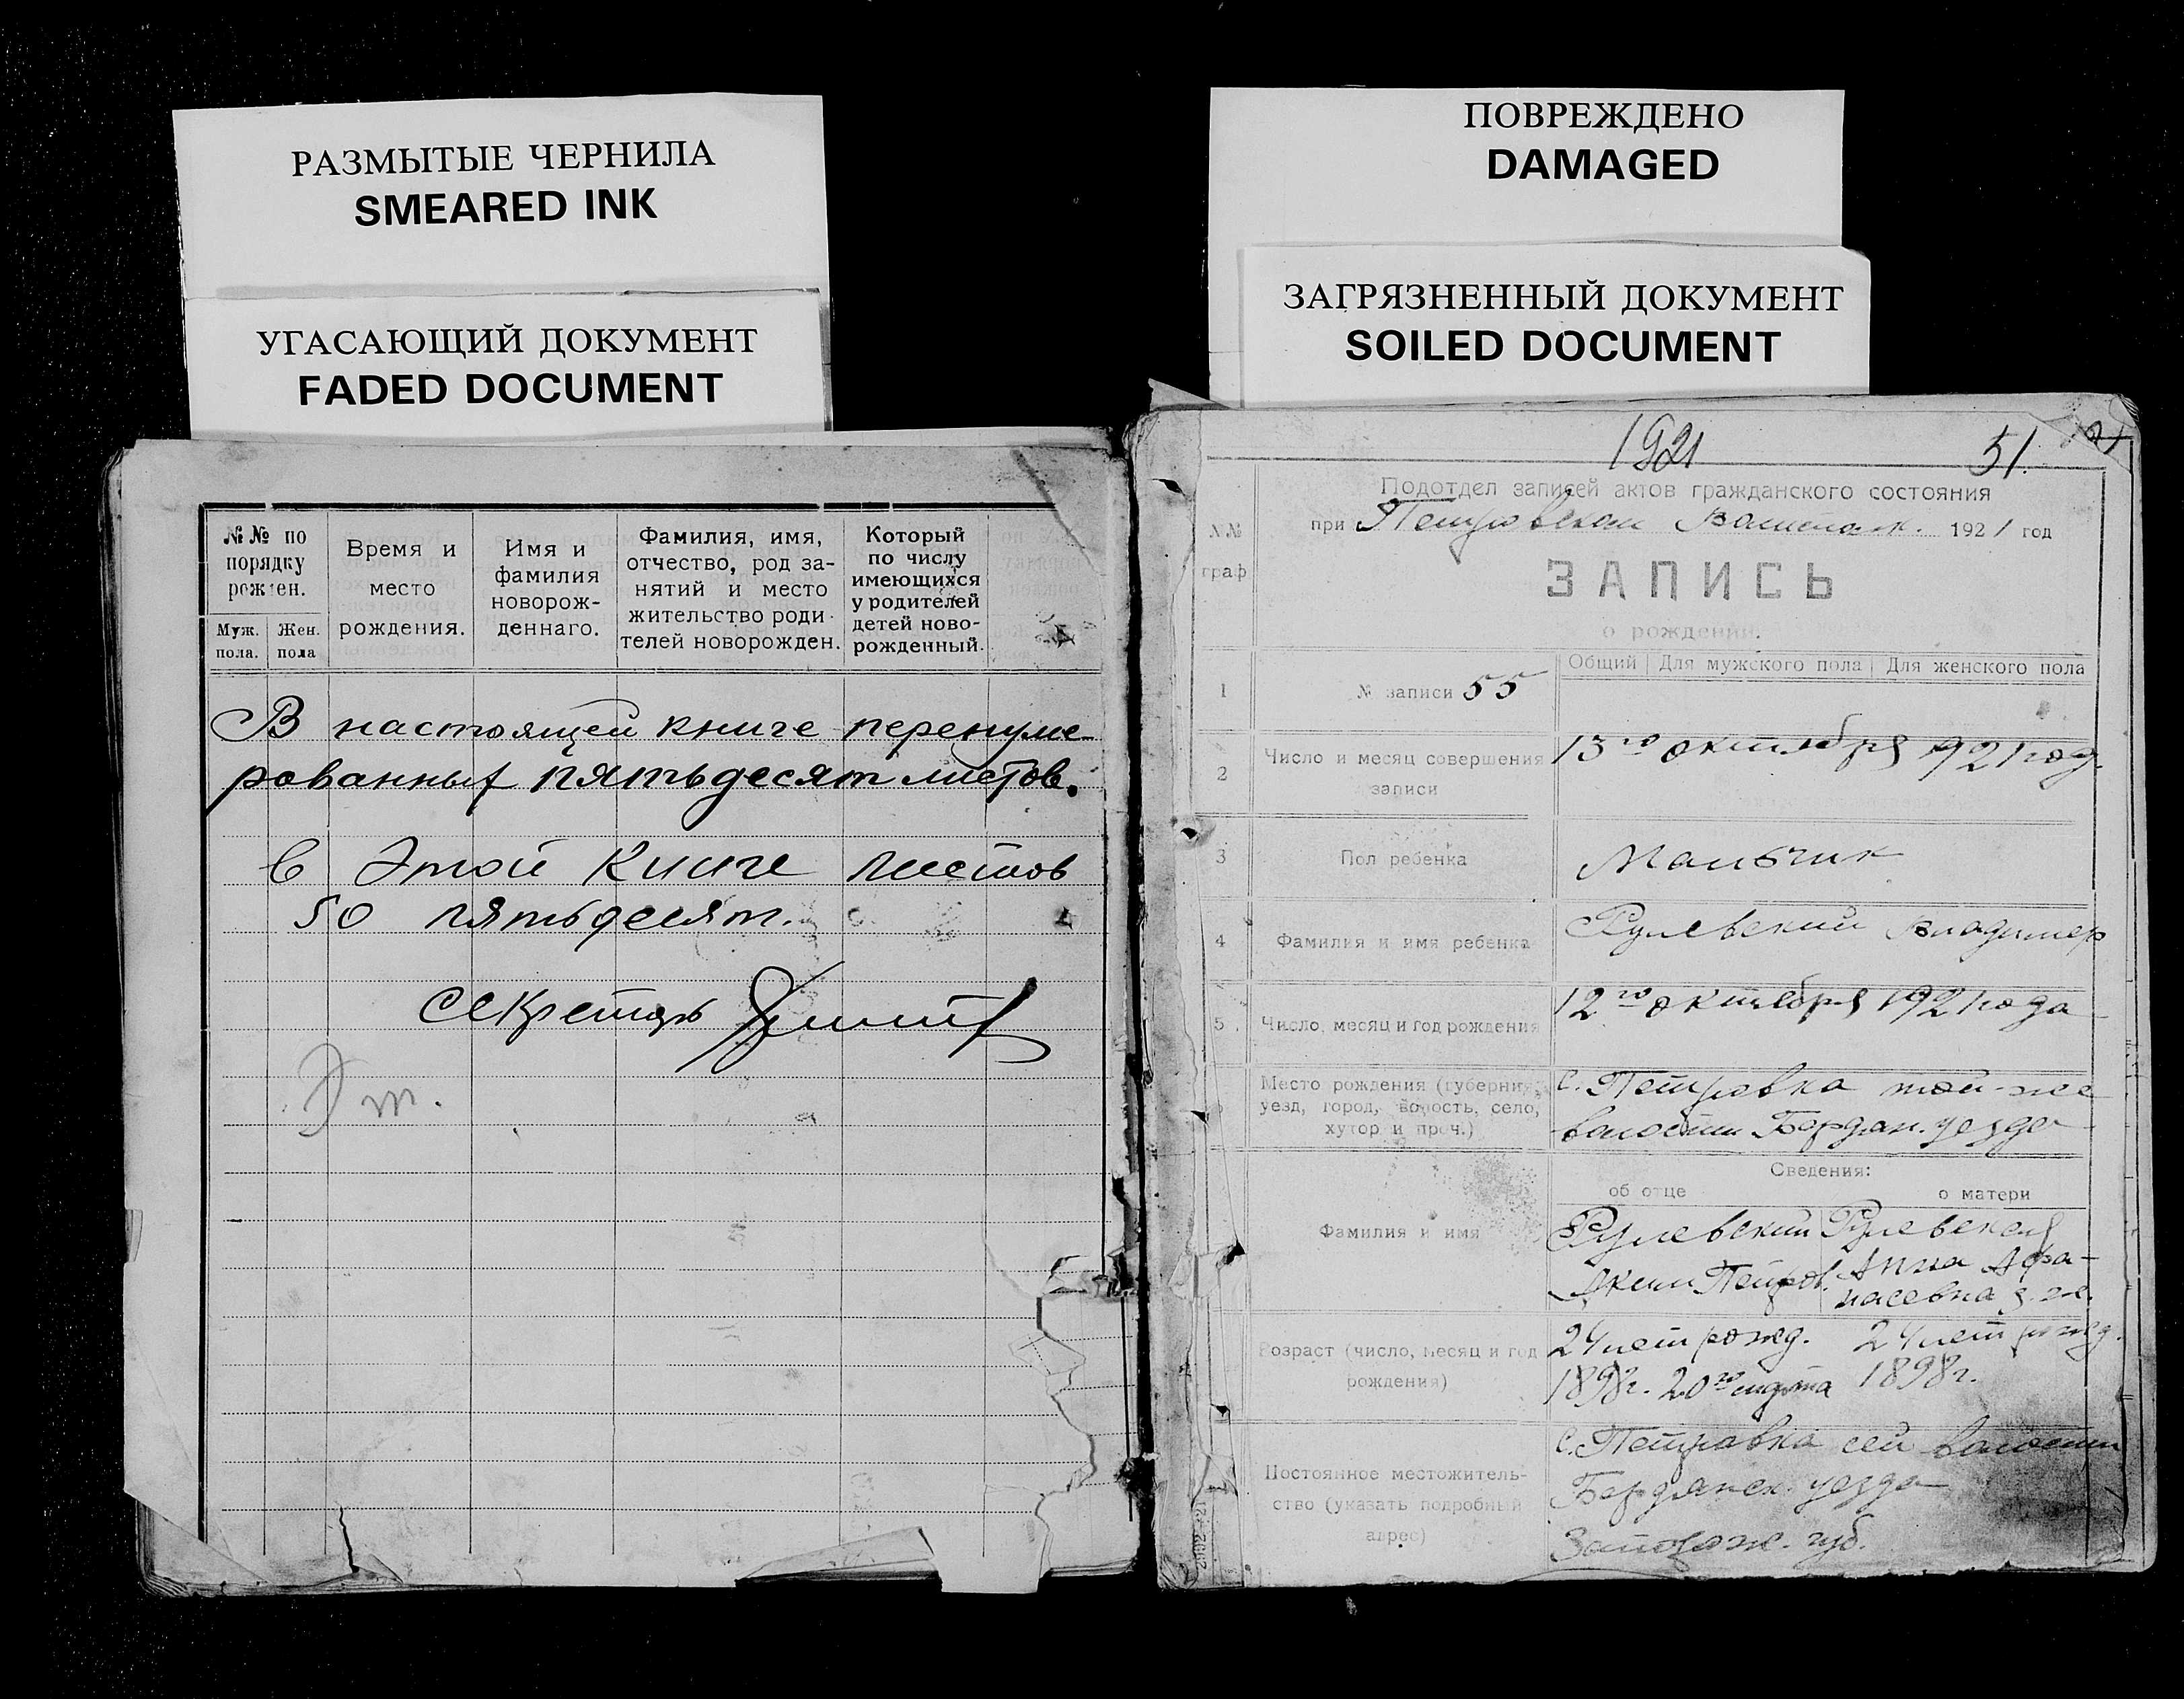 РАЗМЫТЫЕ ЧЕРНИЛА
SMEARED INK
УГАСАЮЩИЙ ДОКУМЕНТ
FADED DOCUMENT
ПОВРЕЖДЕНО
DAMAGED
ЗАГРЯЗНЕННЫЙ ДОКУМЕНТ
SOILED DOCUMENT
№№ по
порядку
рожден.
Муж.
пола.
Жен.
пола
Время и
место
рождения.
Имя и
фамилия
новорож-
деннаго.
Фамилия, имя,
отчество, род за-
нятий и место
жительство роди-
телей новорожден.
Который
по числу
имеющихся
у родителей
детей ново-
рожденный.
В настоящей книге перенуме-
рованных пятьдесят листов.
В этой книге листов
50 пятьдесят.
Секретарь
1921
51.
№№
граф
Подотдел записей актов гражданского состояния
при Петровском Волисполк. 1921 год
ЗАПИСЬ
о рождении.
Общий | Для мужского пола | Для женского пола
1
№ записи 55
2
Число и месяц совершения
записи
13го октября 921 год.
3
Пол ребенка
Мальчик
4
Фамилия и имя ребенка
Рулевский Владимер
5
Число, месяц и год рождения
12го октября 1921 года
Место рождения (губерния,
уезд, город, волость, село,
хутор и проч.)
с. Петровка той-же
волости Бердян. уезда
Сведения:
об отце
о матери
Фамилия и имя
Рулевский
Аким Петров.
Рулевская
Анна Афа-
насевна
Возраст (число, месяц и год
рождения)
24 лет рожд.
1898г. 20го марта
24 лет рожд.
1898г.
Постоянное местожитель-
ство (указать подробный
адрес)
С. Петровка сей волости
Бердянск. уезда
Запорож. губ.